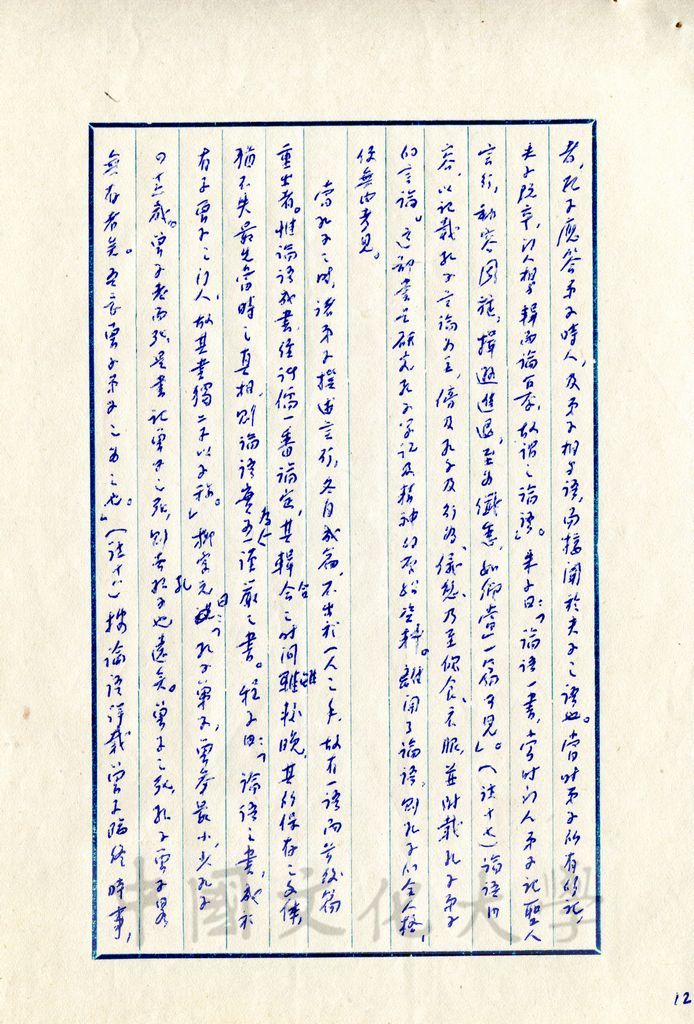 者,孔子應答弟子時人,及弟子相與語,而接聞於夫子之語也。當時弟子各有所記,
夫子既卒,門人相與輯而論纂,故謂之論語。」朱子曰:「論語一書,當時門人弟子記聖人
言行,動容周旋,揖遜進退,至為纖悉,如鄉黨一篇可見」。(註十七)論語內
容,以記載孔子言論為主,傍及孔子及行為、儀態、乃至飲食、衣服,並附載孔子弟子
的言論。這部書是研究孔子學説及精神的原始資料。離開了論語,則孔子的全人格,
便無由考見。
當孔子之時,諸弟子撰述言行,各自成篇,不出於一人之手,故有一語而前後篇
重出者。惟論語成書,經諸儒一番論定,其輯合之時间雖較晚,其所保存之文体,
猶不失最先當時之真相,則論語實為一謹嚴之書。程子曰:「論語之書,成於
有子曾子之門人,故其書獨二子以子稱。」柳宗元曰:「孔子弟子,曾參最小,少孔子
四十六歲。曾子老而死,是書記曾子之死,則去孔子也遠矣。曾子之死,孔子弟子畧
無存者矣。吾意曾子弟子之為之也。」(註十八)按論語詳載曾子臨終時事,
12
中國文化大學